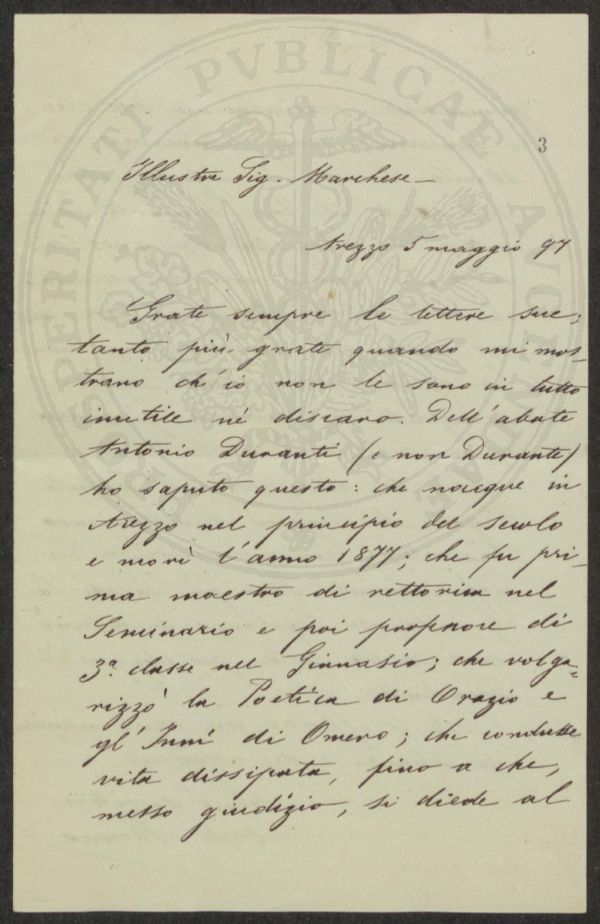 3
Illustre Sig. Marchese –
Arezzo 5 maggio 97
Grate sempre le lettere sue;
tanto più grate quando mi mos-
trano ch'io non le sono in tutto
inutile né discaro. Dell'abate
Antonio Duranti (e non Durante)
ho saputo questo: che nacque in
Arezzo nel principio del secolo
e morì l'anno 1877; che fu pri-
ma maestro di rettorica nel
Seminario e poi professore di
3ª classe nel Ginnasio; che volga-
rizzò la Poetica di Orazio e
gl'Inni di Omero; che condusse
vita dissipata, fino a che,
messo giudizio, si diede al